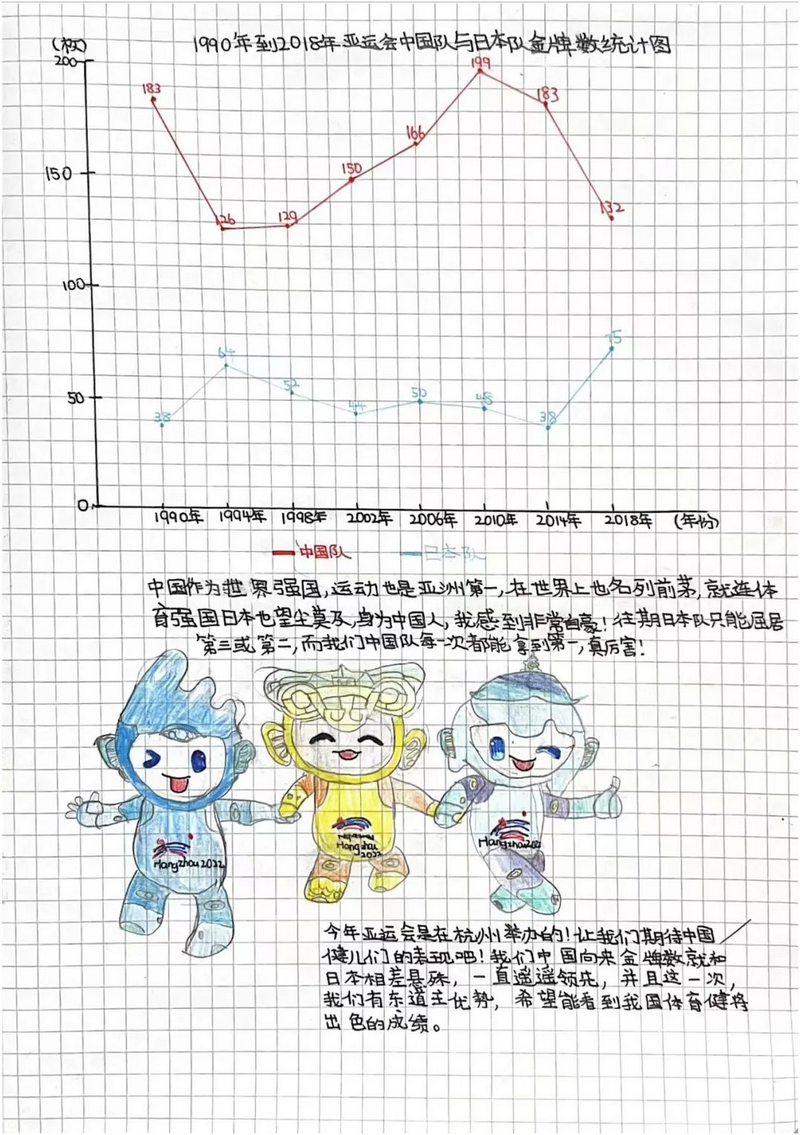 1990年到2018年亚运会中国队与日本队金牌数统计图
(枚)
200
199
183
183
166
150
150
132
129
126
100
75
64
52
50
50
48
44
38
38
0
1990年 1994年 1998年 2002年 2006年 2010年 2014年 2018年 (年份)
中国队 日本队
中国作为世界强国,运动也是亚洲第一,在世界上也名列前茅,就连体
育强国日本也望尘莫及,身为中国人,我感到非常自豪!往期日本队只能屈居
第三或第二,而我们中国队每一次都能拿到第一,真厉害!
Hangzhou 2022
Hangzhou
2022
Hangzhou 202
今年亚运会是在杭州举办的!让我们期待中国
健儿们的表现吧!我们中国向来金牌数就和
日本相差悬殊,一直遥遥领先,并且这一次,
我们有东道主优势,希望能看到我国体育健将
出色的成绩。